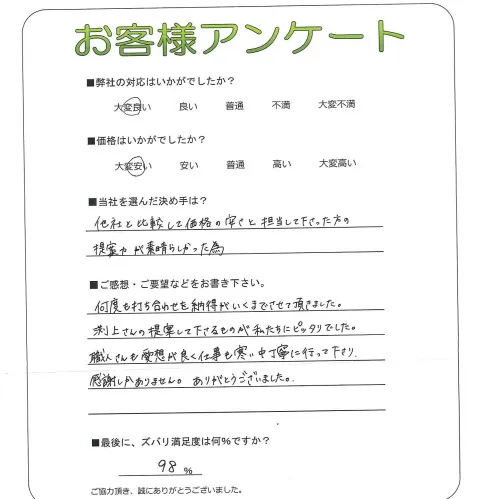 お客様アンケート
■弊社の対応はいかがでしたか？
大変良い 良い 普通 不満 大変不満
■価格はいかがでしたか？
大変安い 安い 普通 高い 大変高い
■当社を選んだ決め手は？
他社と比較して価格の安さと担当して下さった方の
提案力が素晴らしかった為
■ご感想・ご要望などをお書き下さい。
何度も打ち合わせを納得がいくまでさせて頂きました。
渕上さんの提案して下さるものが私たちにピッタリでした。
職人さんも愛想が良く仕事も寒い中丁寧に行って下さり、
感謝しかありません。ありがとうございました。
■最後に、ズバリ満足度は何％ですか？
98 %
ご協力頂き、誠にありがとうございました。